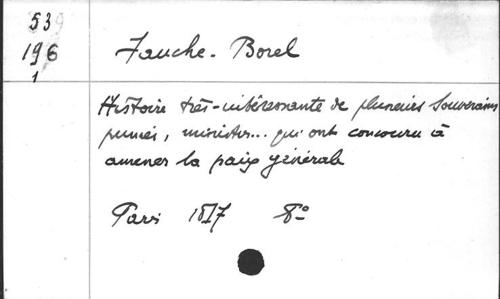 539
196
1
Fauche-Borel
Histoire très-intéressante de plusieurs Souverains
princes, ministres... qui ont concouru à
amener la paix générale
Paris 1817 8º